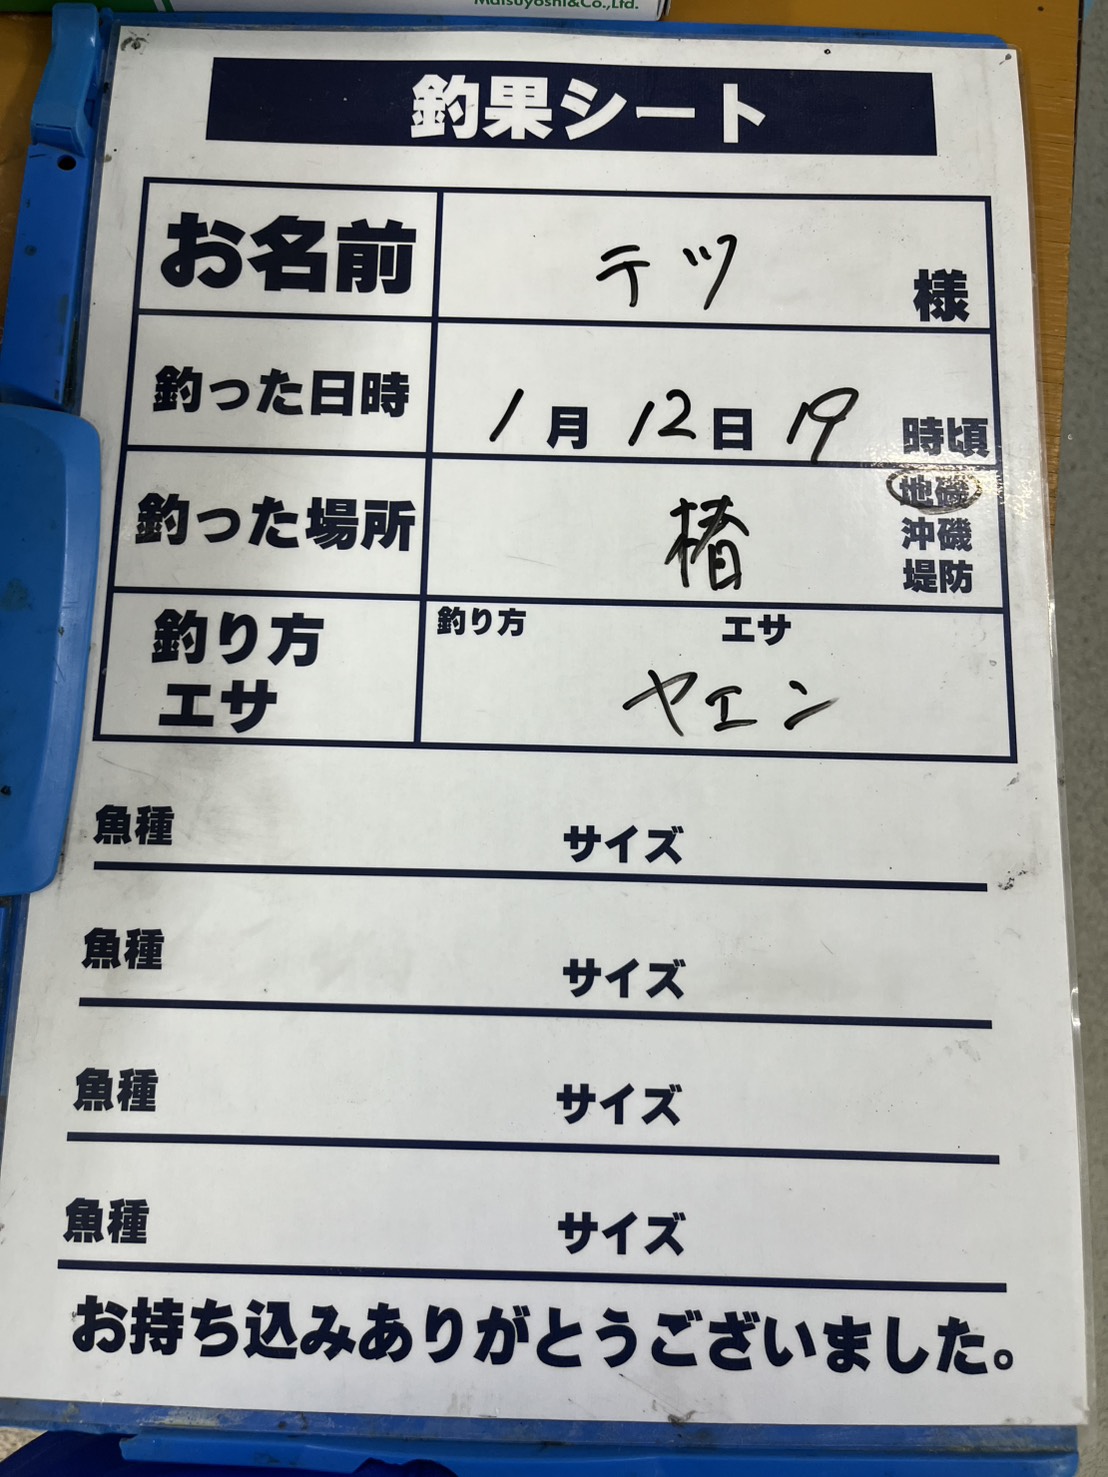 Matsuyoshi&Co.,Ltd.
釣果シート
お名前 テツ 様
釣った日時 1月12日19時頃
釣った場所 椿 地磯
沖磯
堤防
釣り方 エサ
釣り方
エサ
ヤエン
魚種 サイズ
魚種 サイズ
魚種 サイズ
魚種 サイズ
お持ち込みありがとうございました。